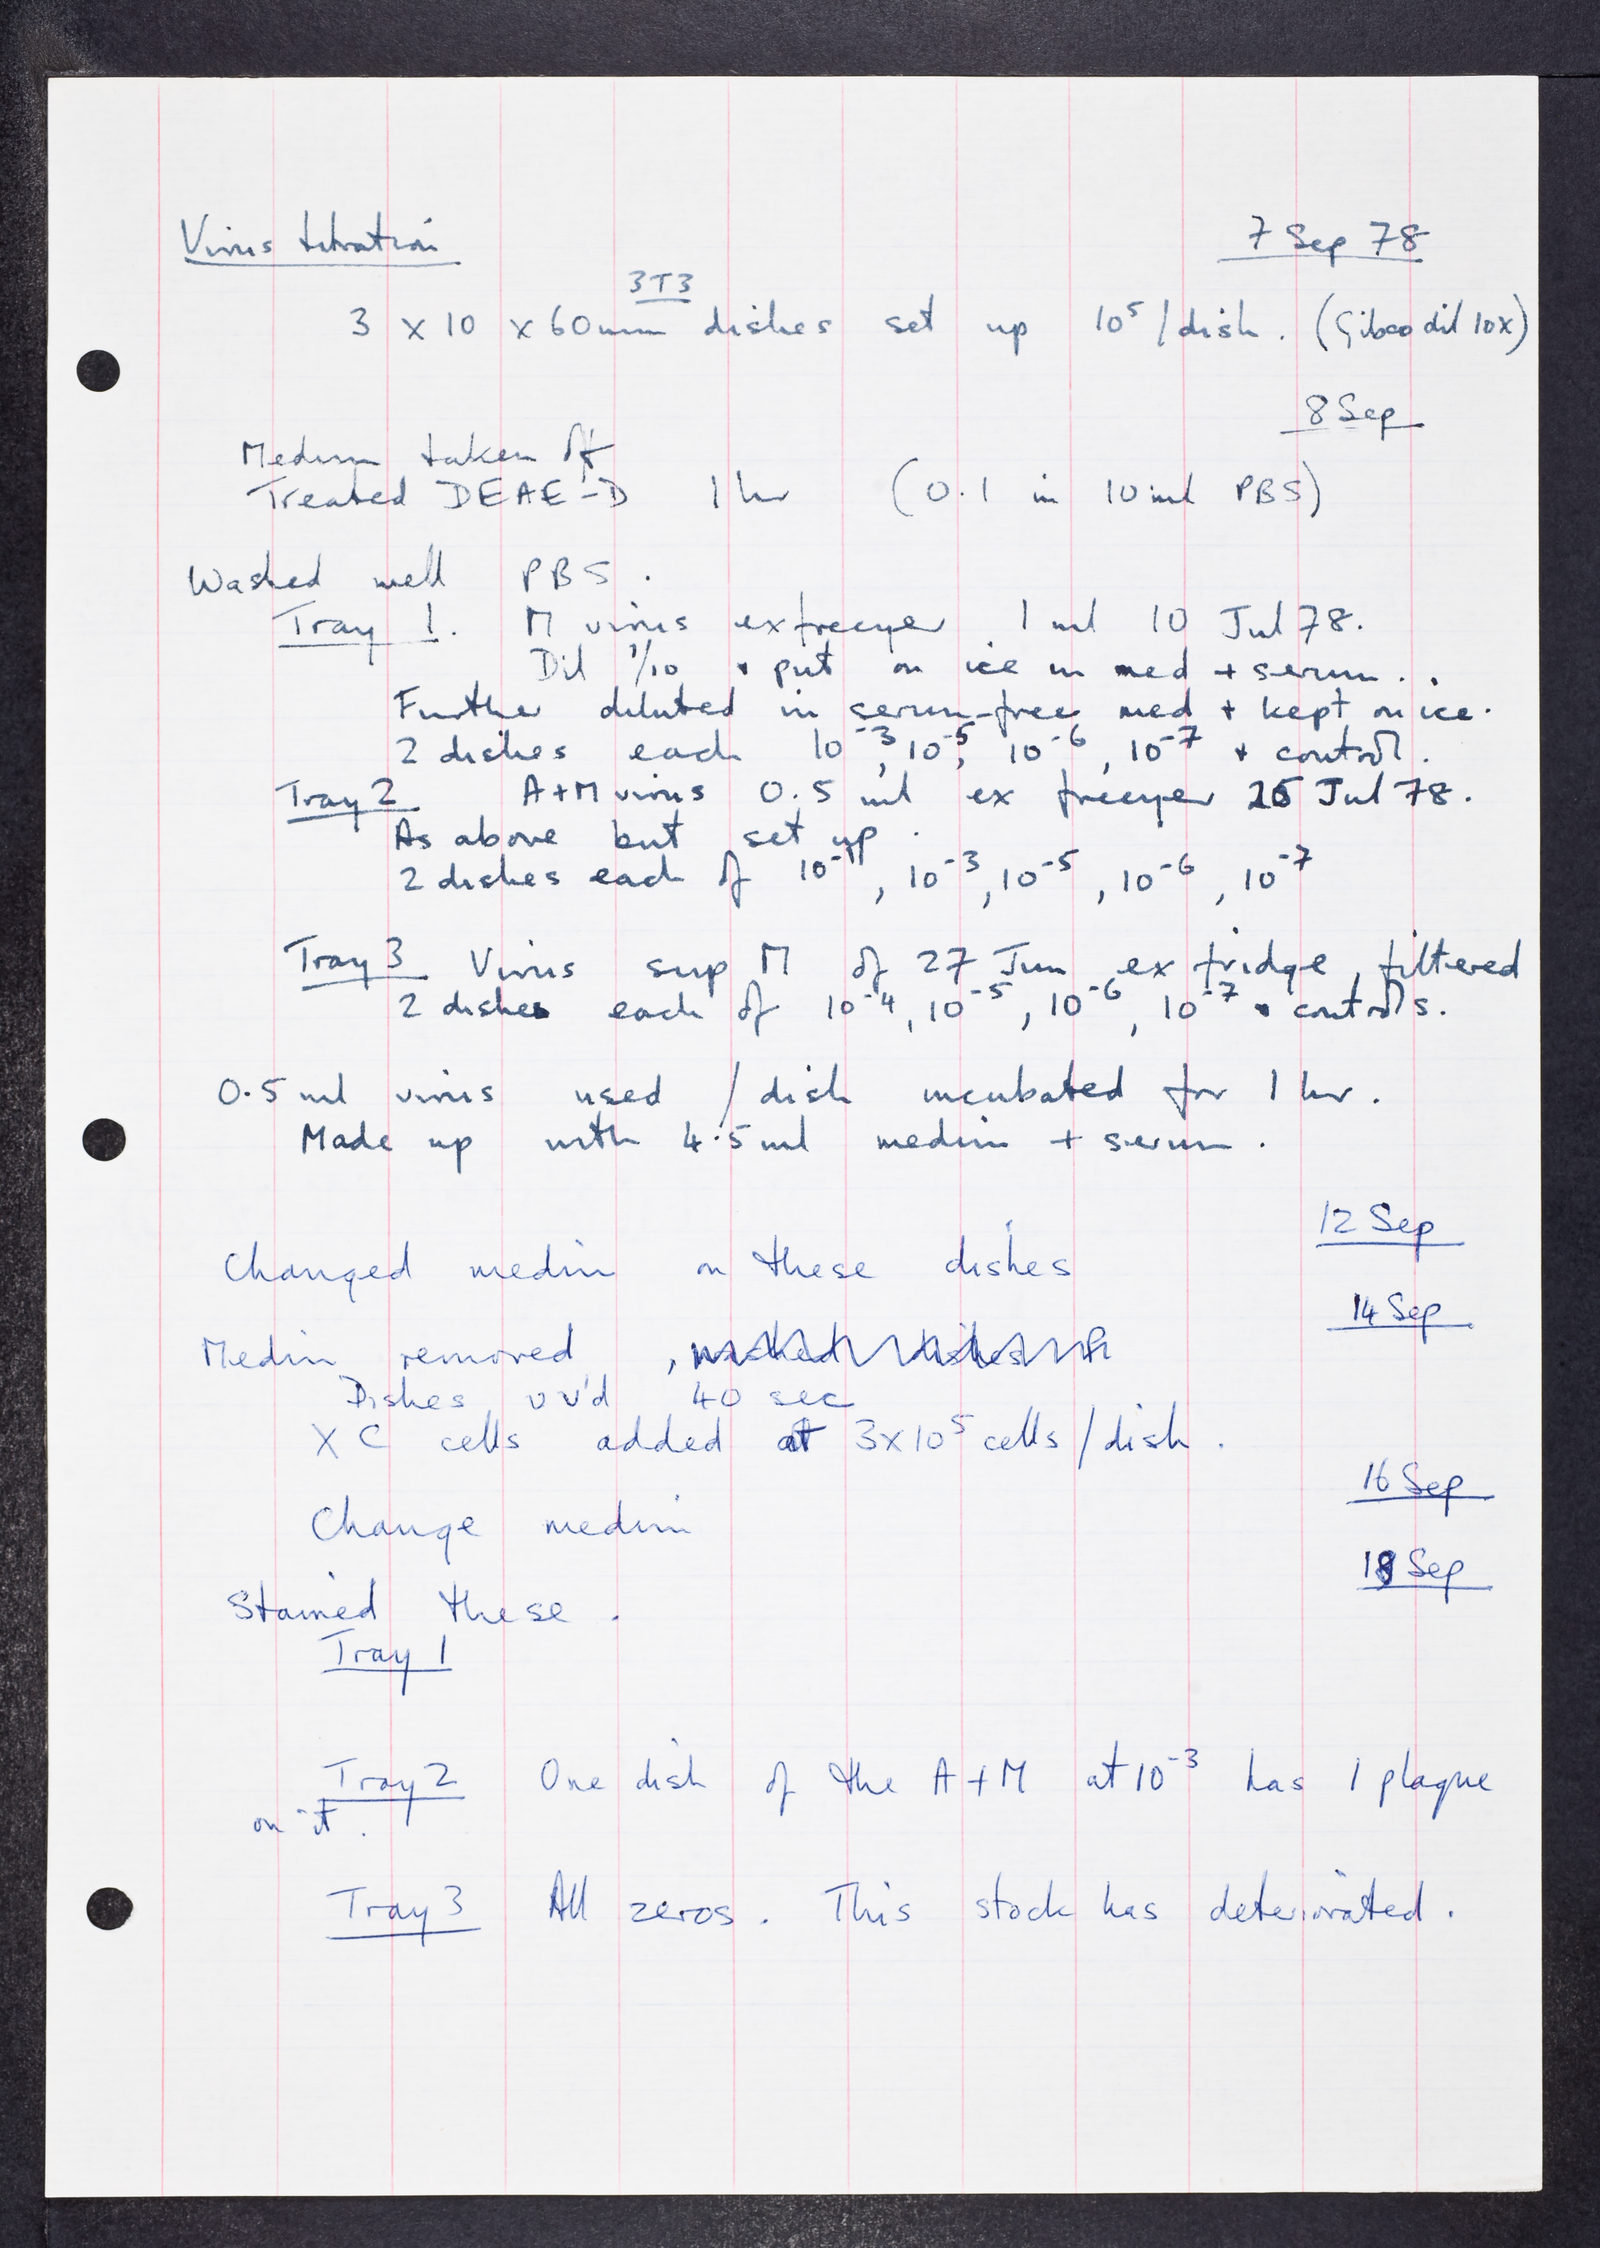 Virus titration
7 Sep 78
3T3
3 x 10 x 60mm dishes set up 10⁵/dish. (Gibco dil 10x)
8 Sep
Medium taken off
Treated DEAE-D 1 hr (0.1 in 10 ml PBS)
Washed well PBS.
Tray 1. M virus ex freezer 1 ml 10 Jul 78.
Dil 1/10 + put on ice in med + serum..
Further diluted in serum-free med + kept on ice.
2 dishes each 10⁻³, 10⁻⁵, 10⁻⁶, 10⁻⁷ + control.
Tray 2 A+M virus 0.5 ml ex freezer Jul 78.
As above but set up.
2 dishes each of 10⁻¹, 10⁻³, 10⁻⁵, 10⁻⁶, 10⁻⁷
Tray 3 Virus sup M of 27 Jun ex fridge, filtered
2 dishes each of 10⁻⁴, 10⁻⁵, 10⁻⁶, 10⁻⁷ + controls.
0.5 ml virus used / dish incubated for 1 hr.
Made up with 4.5 ml medium + serum.
12 Sep
Changed medium on these dishes
14 Sep
Medium removed, washed dishes
Dishes UV'd 40 sec
XC cells added at 3x10⁵ cells/dish.
16 Sep
Change medium
18 Sep
Stained these.
Tray 1
Tray 2 One dish of the A+M at 10⁻³ has 1 plaque
on it.
Tray 3 All zeros. This stock has deteriorated.